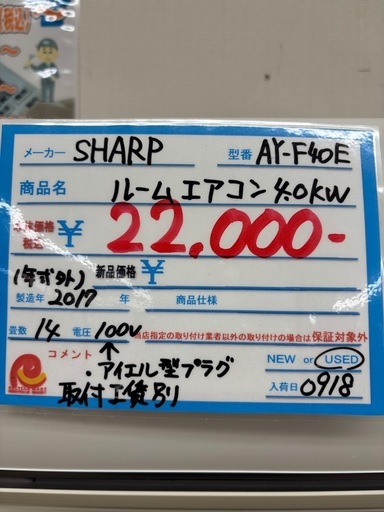 メーカー SHARP 型番 AY-F40E
商品名 ルームエアコン 4.0kW
本体価格 税込 ¥ 22,000-
(年式外) 新品価格 ¥
製造年 2017 年 商品仕様
畳数 14 電圧 100V 当店指定の取り付け業者以外の取り付けの場合は保証対象外
コメント ↑ NEW or USED
・アイエル型プラグ
取付工賃別り 入荷日 0918